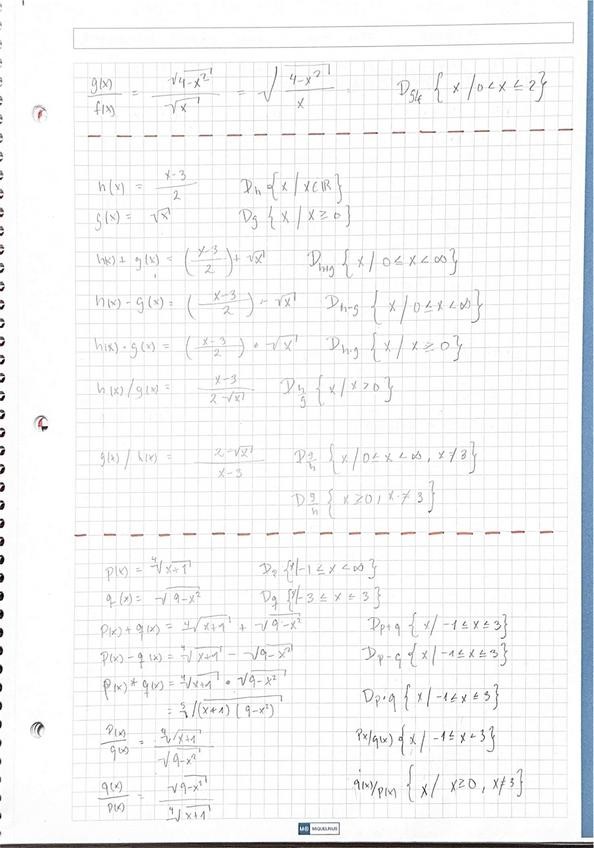 g(x)/f(x) = √(4-x²)/√x = √((4-x²)/x) D g/f { x / 0 < x ≤ 2 }
h(x) = (x-3)/2 Dh { x / x∈ℝ }
g(x) = √x Dg { x / x ≥ 0 }
h(x) + g(x) = ((x-3)/2) + √x Dh+g { x / 0 ≤ x < ∞ }
h(x) - g(x) = ((x-3)/2) - √x Dh-g { x / 0 ≤ x < ∞ }
h(x) · g(x) = ((x-3)/2) · √x Dh·g { x / x ≥ 0 }
h(x) / g(x) = (x-3)/(2·√x) D h/g { x / x > 0 }
g(x) / h(x) = (2·√x)/(x-3) D g/h { x / 0 ≤ x < ∞, x ≠ 3 }
D g/h { x ≥ 0, x ≠ 3 }
p(x) = ⁴√(x+1) Dp { x / -1 ≤ x < ∞ }
q(x) = √(9-x²) Dq { x / -3 ≤ x ≤ 3 }
p(x) + q(x) = ⁴√(x+1) + √(9-x²) Dp+q { x / -1 ≤ x ≤ 3 }
p(x) - q(x) = ⁴√(x+1) - √(9-x²) Dp-q { x / -1 ≤ x ≤ 3 }
p(x) * q(x) = ⁴√(x+1) · √(9-x²)
= √((x+1)(9-x²)) Dp·q { x / -1 ≤ x ≤ 3 }
p(x)/q(x) = ⁴√(x+1)/√(9-x²) px/q(x) { x / -1 ≤ x < 3 }
q(x)/p(x) = √(9-x²)/⁴√(x+1) q(x)/p(x) { x / x ≥ 0, x ≠ 3 }
MIQUELRIUS